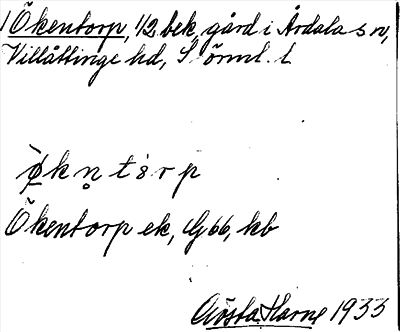 Ökentorp, 1/2 bek. gård i Årdala sn,
Villåttinge hd, Sörml. l
ø̀kn̥tsrp
Ökentorp ek, G66, kb
Gösta Harne 1933